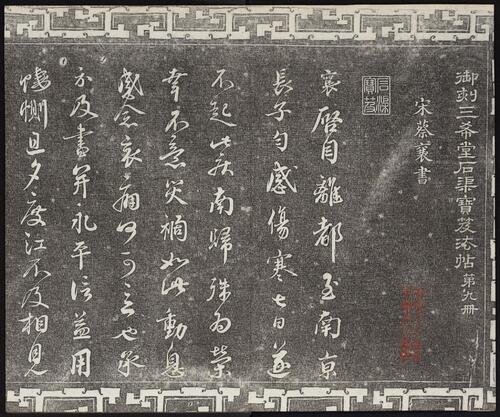 御刻三希堂石渠寶笈法帖 第九冊
宋蔡襄書
石渠寶笈
襄啓自離都至南京
長子勻感傷寒七日遂
不起此疾南歸殊為榮
幸不意災禍如此動息
感念哀痛何可言也承
示及書并永平信益用
悽惻旦夕度江不及相見